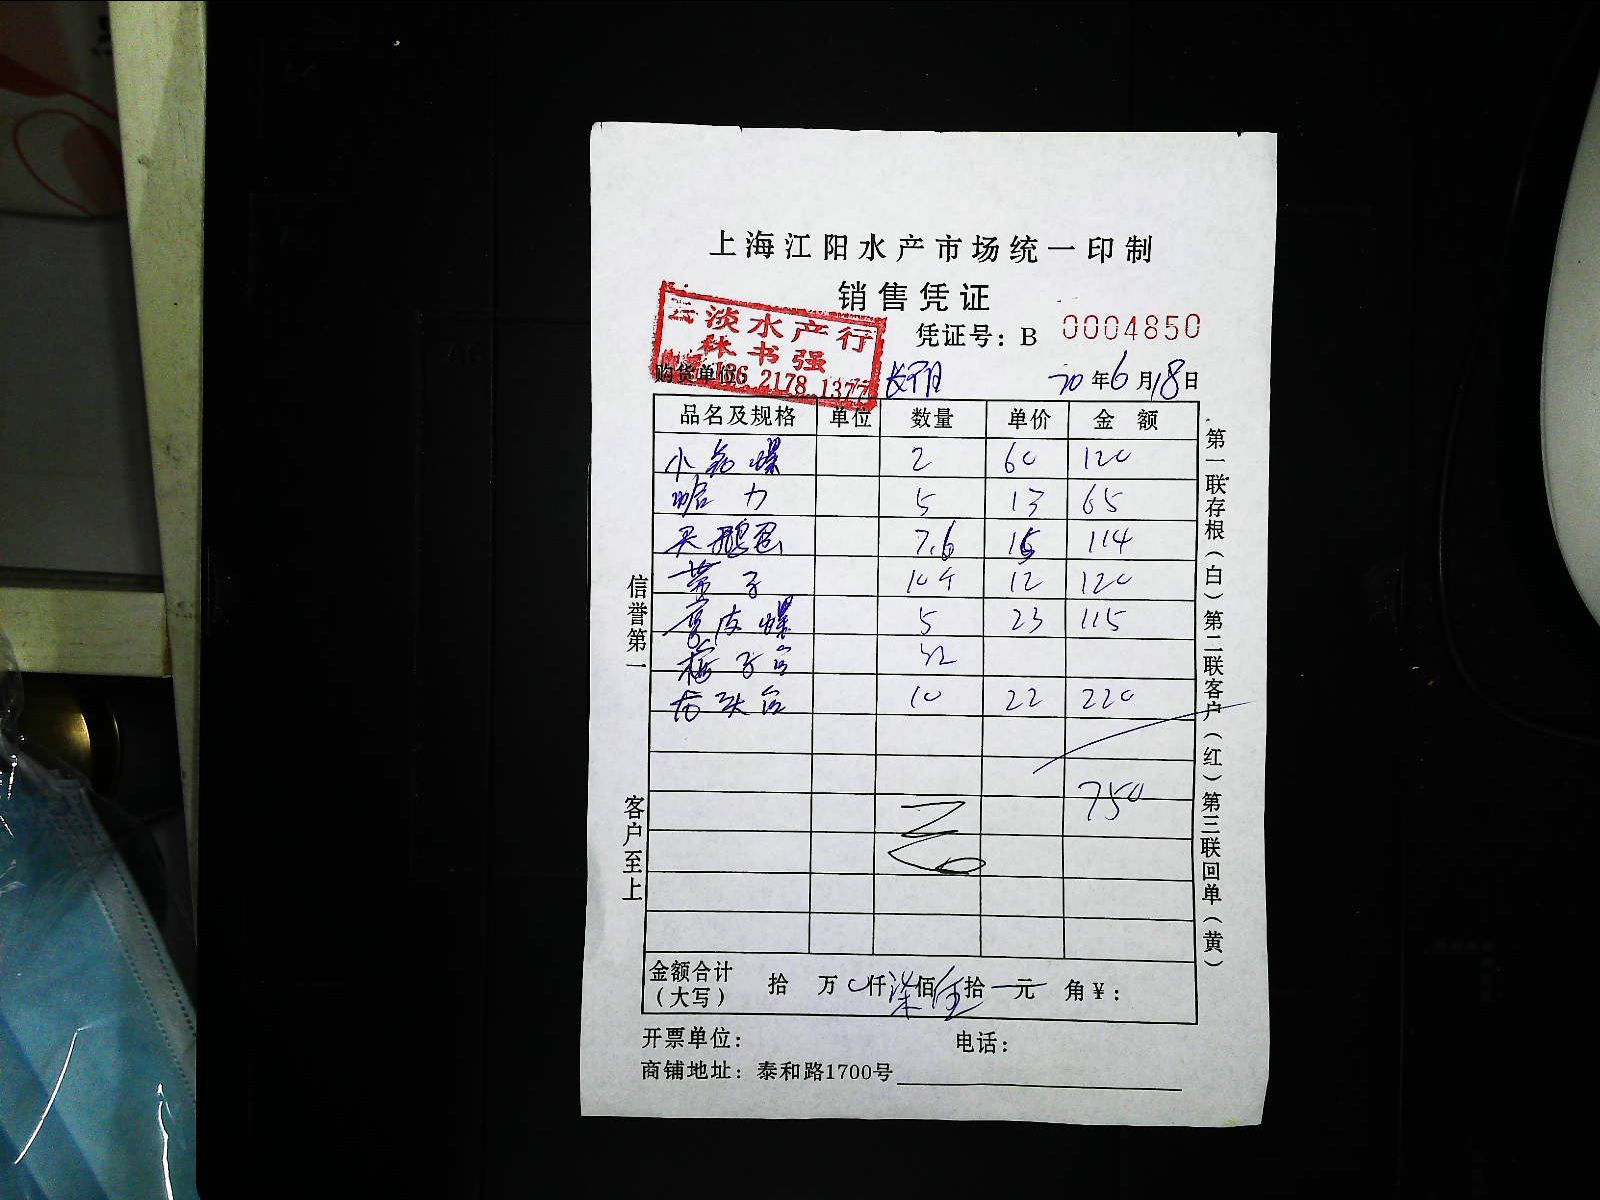 上海江阳水产市场统一印制
销售凭证
云淡水产行
林书强
136 2178 1377
凭证号：B 0004850
购货单位
20年6月18日
品名及规格 单位 数量 单价 金额
小 螺 2 60 120
哈力 5 13 65
天鹅蛋 7.6 15 114
带子 10个 12 120
皮螺 5 23 115
32
10 22 220
750
金额合计（大写） 拾 万 仟柒佰伍拾 元 角￥：
开票单位： 电话：
商铺地址：泰和路1700号
信誉第一 客户至上
第一联存根（白）第二联客户（红）第三联回单（黄）